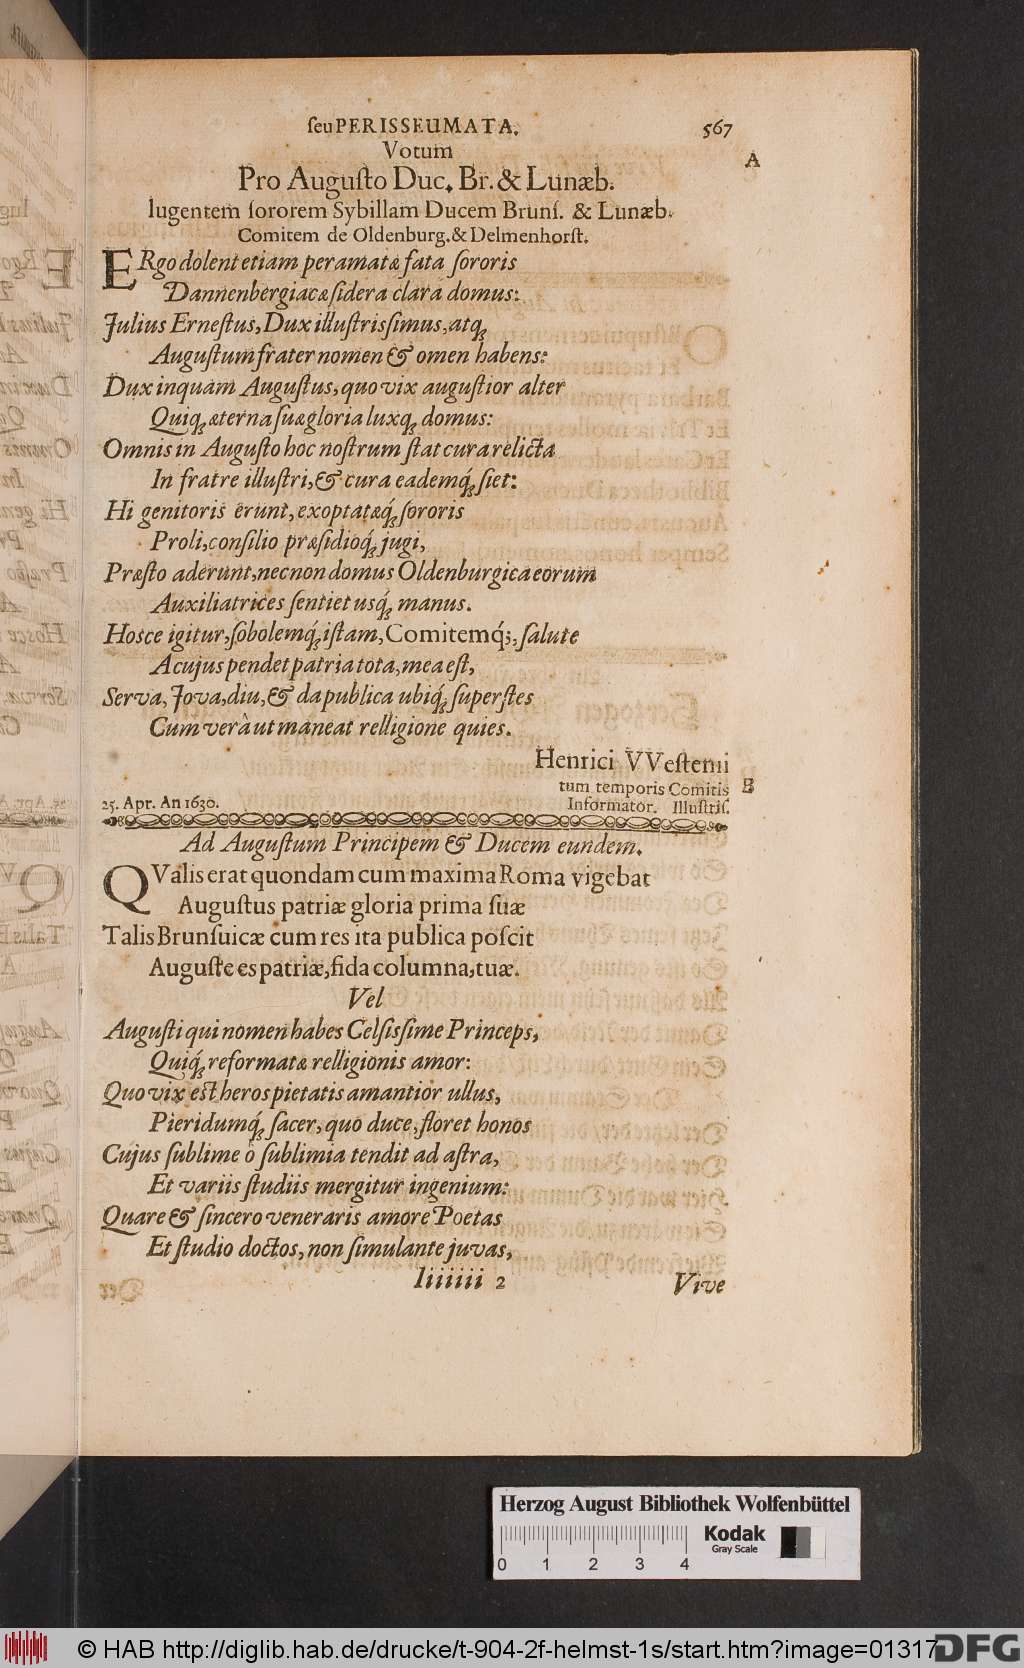 ſeu PERISSEUMATA. 567
A
Votum
Pro Auguſto Duc. Br. & Lunæb.
lugentem ſororem Sybillam Ducem Brunſ. & Lunæb.
Comitem de Oldenburg. & Delmenhorſt.
ERgo dolent etiam peramatæ fata ſororis
Dannenbergiacæ ſidera clara domus:
Julius Erneſtus, Dux illuſtrisſimus, atq;
Auguſtum frater nomen & omen habens:
Dux inquam Auguſtus, quo vix auguſtior alter
Quiq; æterna ſuæ gloria luxq; domus:
Omnis in Auguſto hoc noſtrum ſtat cura relicta
In fratre illuſtri, & cura eademq́; ſiet:
Hi genitoris erunt, exoptatæq́; ſororis
Proli, conſilio præſidioq́; jugi,
Præſto aderunt, nec non domus Oldenburgica eorum
Auxiliatrices ſentiet usq́; manus.
Hosce igitur, ſobolemq́; iſtam, Comitemq́;, ſalute
A cujus pendet patria tota, mea eſt,
Serva, Jova, diu, & da publica ubiq́; ſuperſtes
Cum verà ut maneat relligione quies.
Henrici VVeſtemii
tum temporis Comitis B
25. Apr. An 1630. Informator. Illuſtriſ.
Ad Auguſtum Principem & Ducem eundem.
QValis erat quondam cum maxima Roma vigebat
Auguſtus patriæ gloria prima ſuæ
Talis Brunſuicæ cum res ita publica poſcit
Auguſte es patriæ, fida columna, tuæ.
Vel
Auguſti qui nomen habes Celſisſime Princeps,
Quiq́; reformatæ relligionis amor:
Quo vix eſt heros pietatis amantior ullus,
Pieridumq́; ſacer, quo duce, floret honos
Cujus ſublime ô ſublimia tendit ad aſtra,
Et variis ſtudiis mergitur ingenium:
Quare & ſincero veneraris amore Poetas
Et ſtudio doctos, non ſimulante juvas,
Iiiiiii 2 Vive
Herzog August Bibliothek Wolfenbüttel
Kodak
Gray Scale
0 1 2 3 4
© HAB http://diglib.hab.de/drucke/t-904-2f-helmst-1s/start.htm?image=01317
DFG